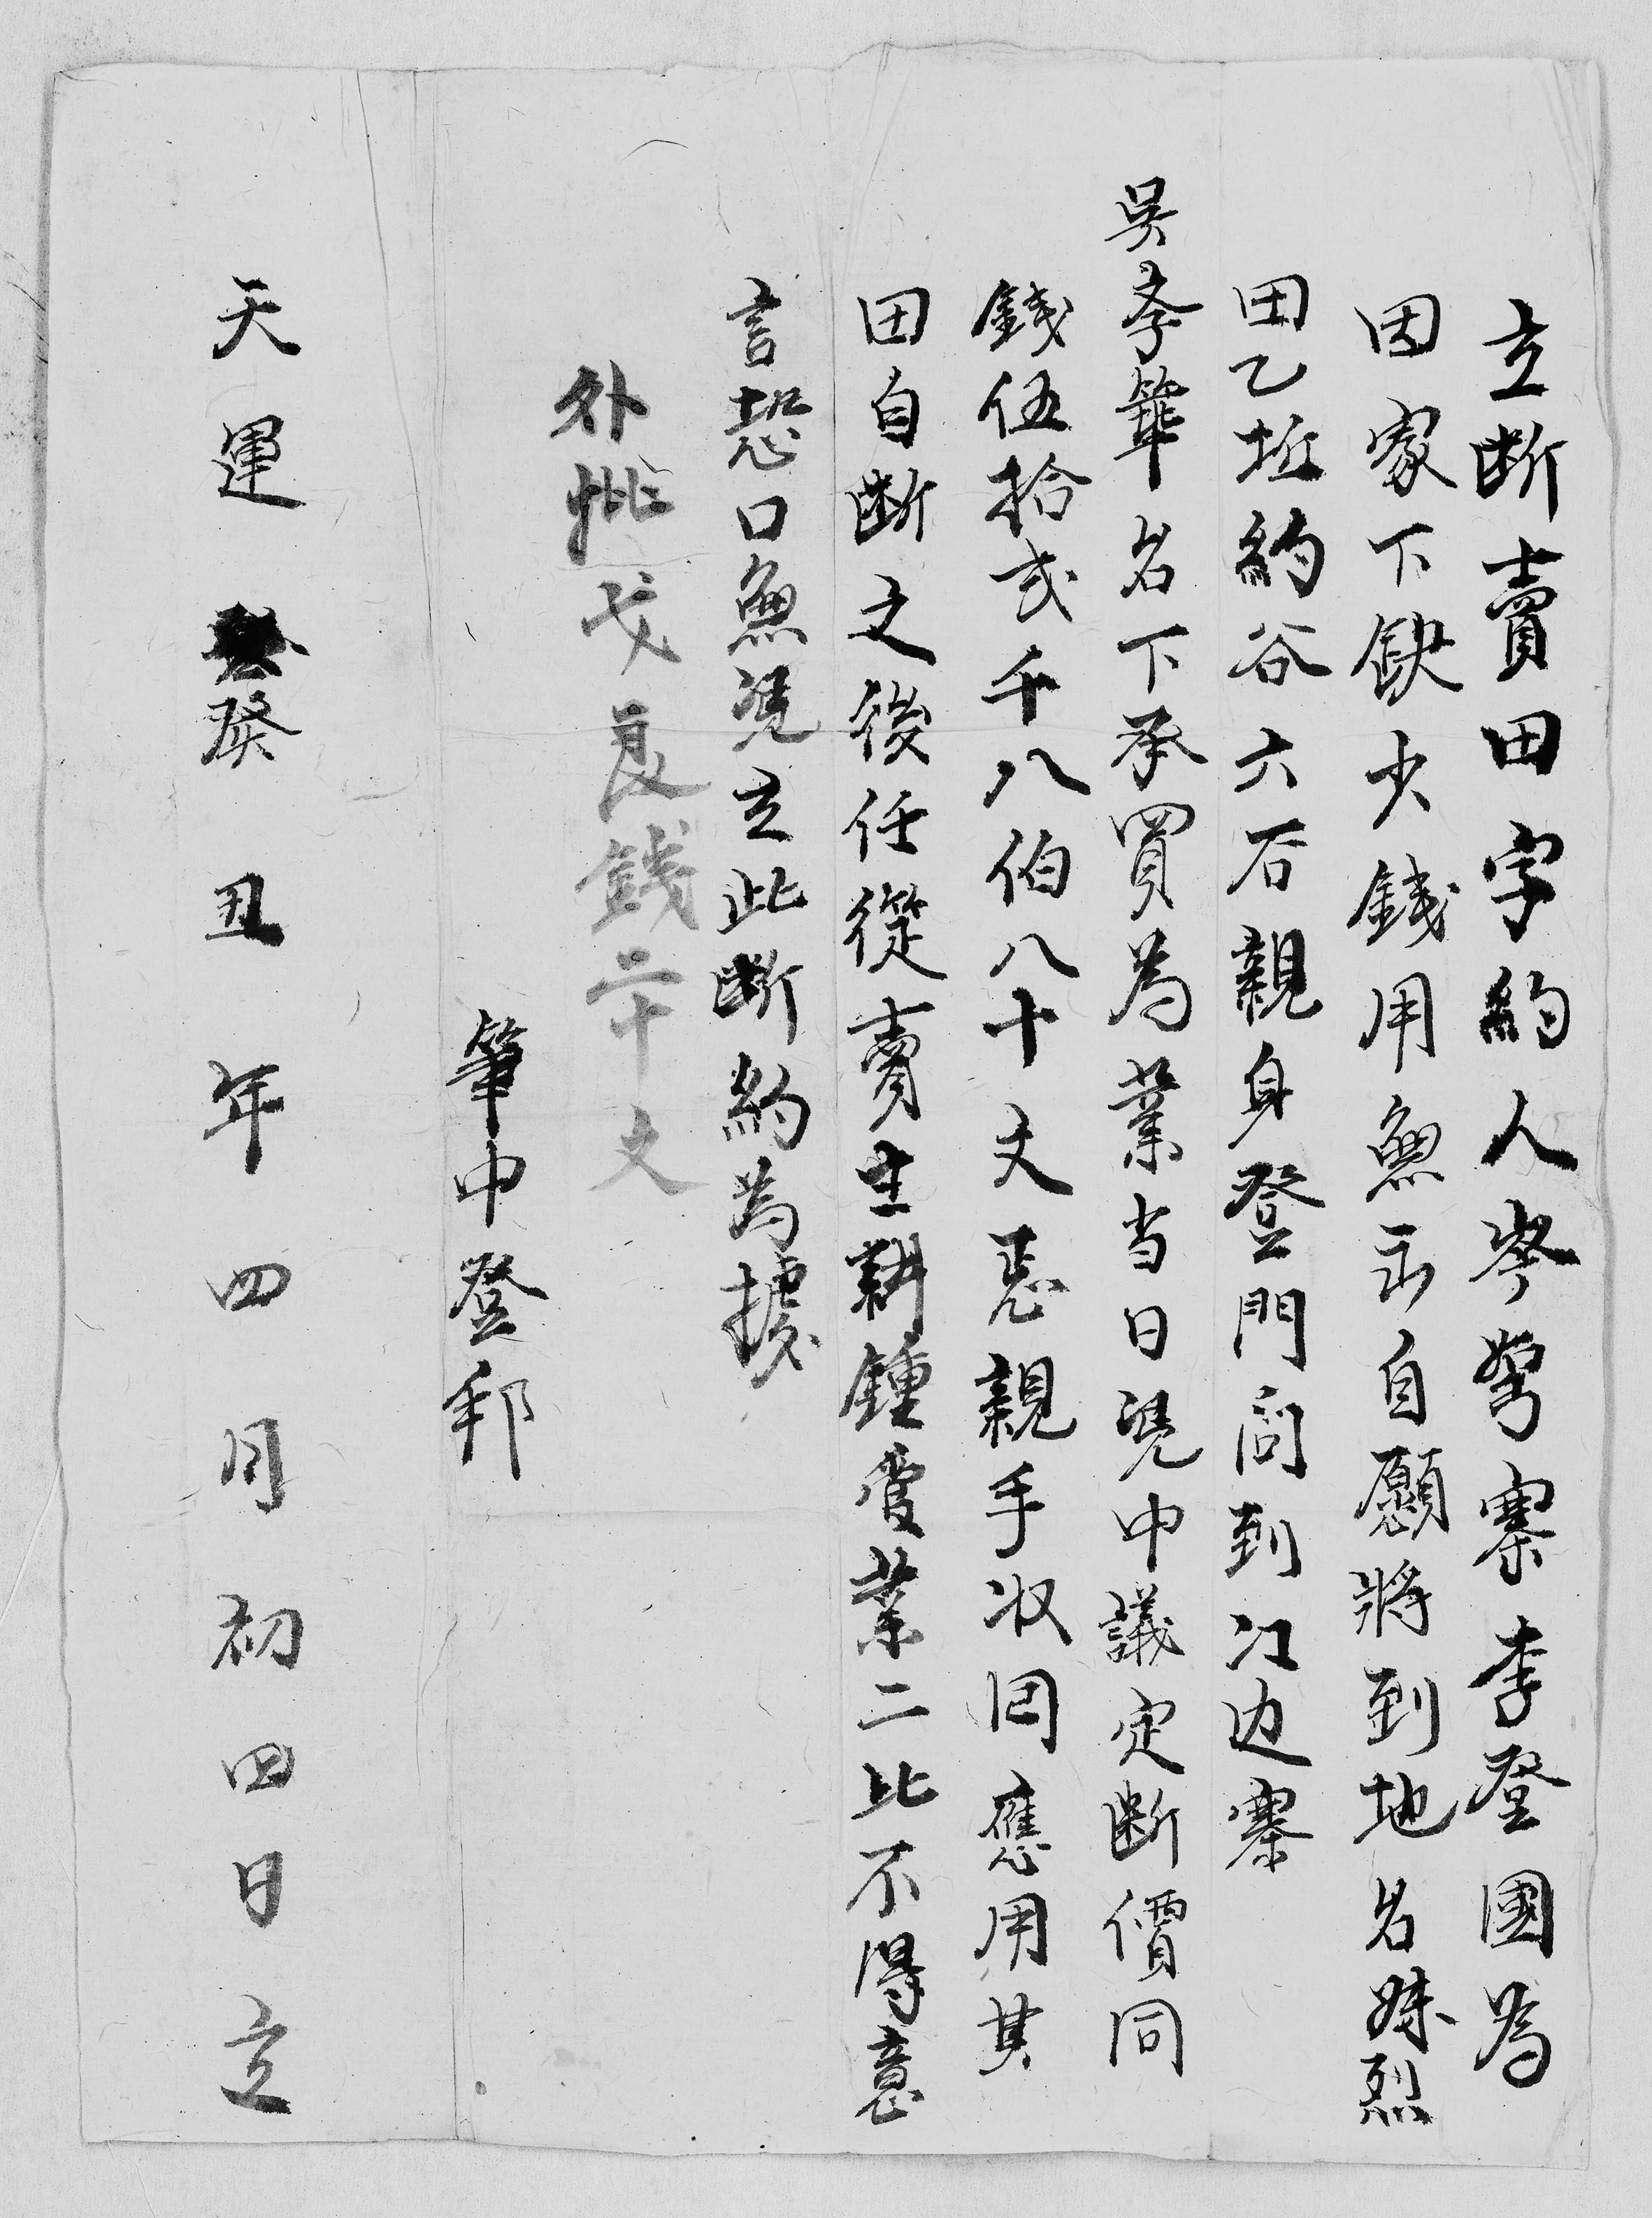 立断賣田字約人岑努寨李登國為
因家下缺少錢用無示自愿將到地名妹烈
田乙坵約谷六石親身登門问到江边寨
吴李華名下承買為業当日凴中議定断價同
錢伍拾弍千八伯八十文悉親手收囘應用其
田自断之後任從賣主耕鍾爱業二比不得意
言恐口無凴立此断約為據
外批戈良錢二十文
筆中登邦
天運癸丑年四月初四日立